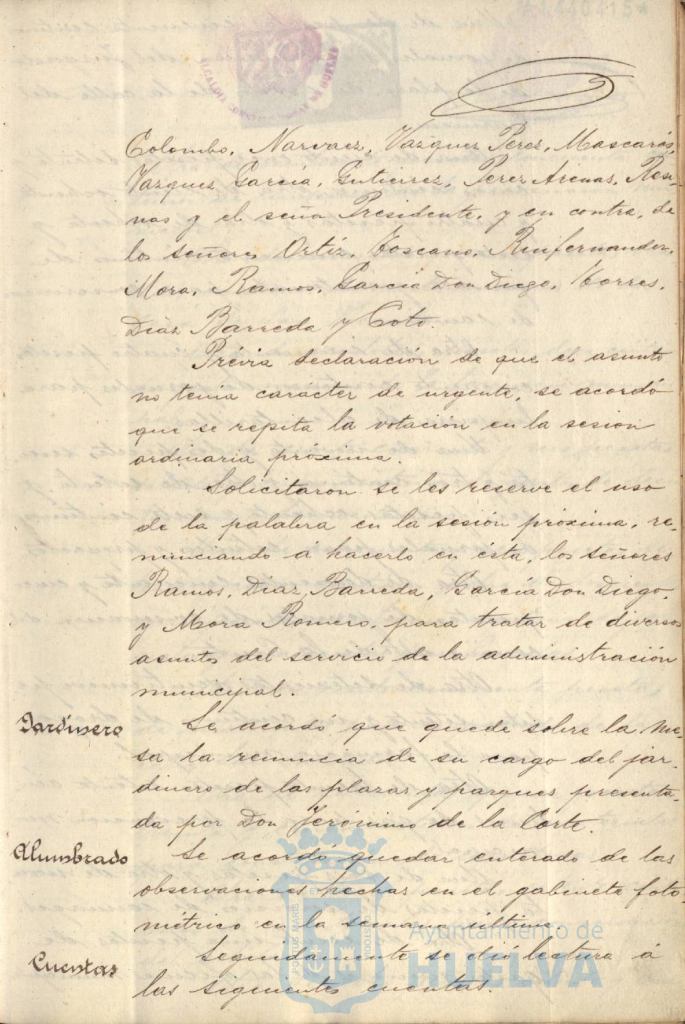 Colombo, Narvaez, Vazquez Perez, Mascarós,
Vazquez García, Gutierrez, Perez Arenas, Res-
nas y el seña Presidente, y en contra, de
los señores Ortíz, Toscano, Ruifernandez,
Mora, Ramos, García Don Diego, Torres,
Diáz Barreda y Coto.
Prévia declaración de que el asunto
no tenia caracter de urgente, se acordó
que se repita la votación en la sesion
ordinaria próxima.
Solicitaron se les reserve el uso
de la palabra en la sesión próxima, re-
nunciando á hacerlo en ésta, los señores
Ramos, Diaz, Barreda, García Don Diego,
y Mora Romero, para tratar de diversos
asuntos del servicio de la administración
municipal.
Jardinero
Se acordó que quede sobre la me-
sa la renuncia de su cargo del jar-
dinero de las plazas y parques presenta-
da por Don Jerónimo de la Corte.
Alumbrado
Se acordó quedar enterado de las
observaciones hechas en el gabinete foto-
métrico en la semana última.
Cuentas
Seguidamente se dió lectura á
las siguientes cuentas.
Ayuntamiento de
HUELVA